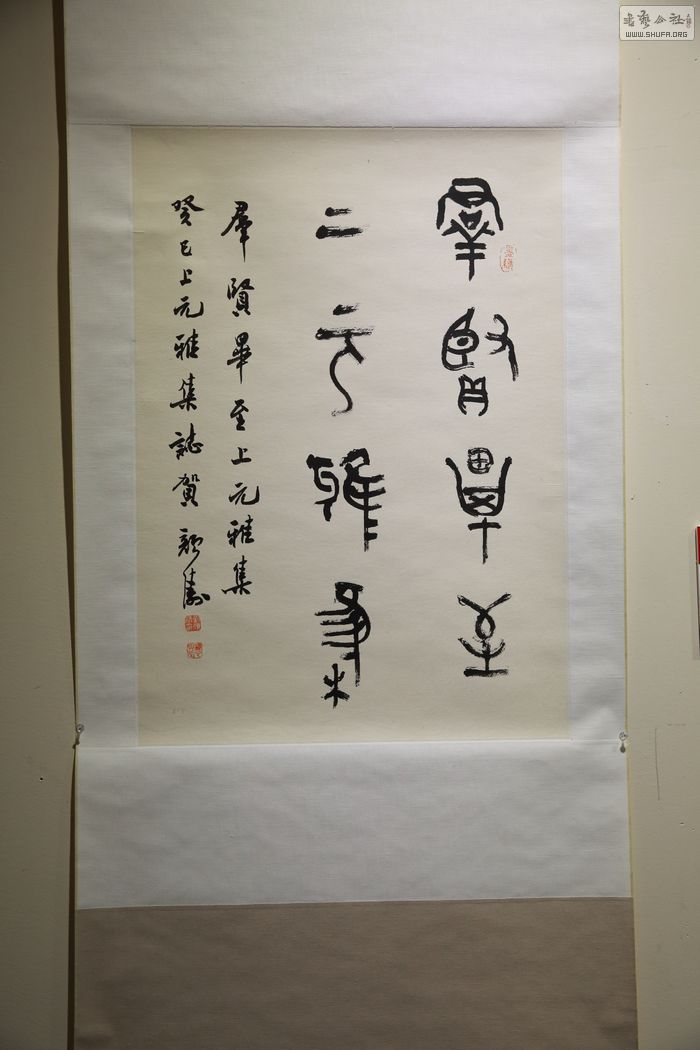 羣賢畢至
上元雅集
羣賢畢至上元雅集
癸巳上元雅集誌賀
WWW.SHUFA.ORG